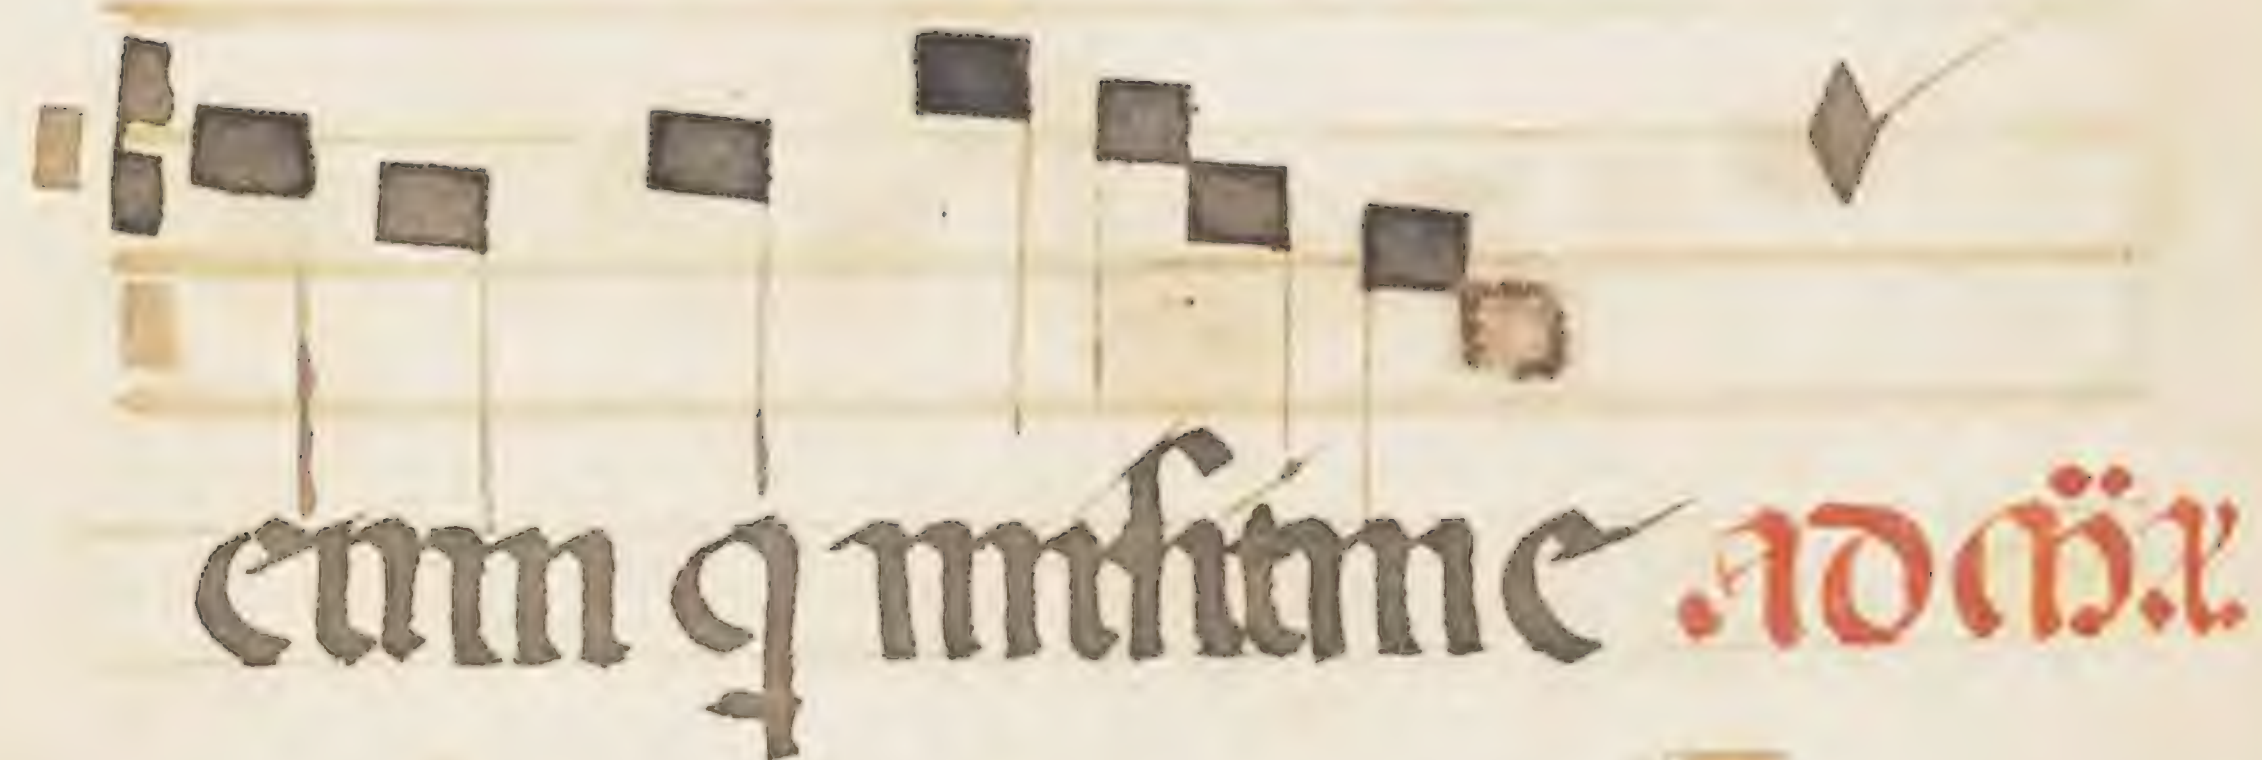 eum ꝗ miſit me Ad